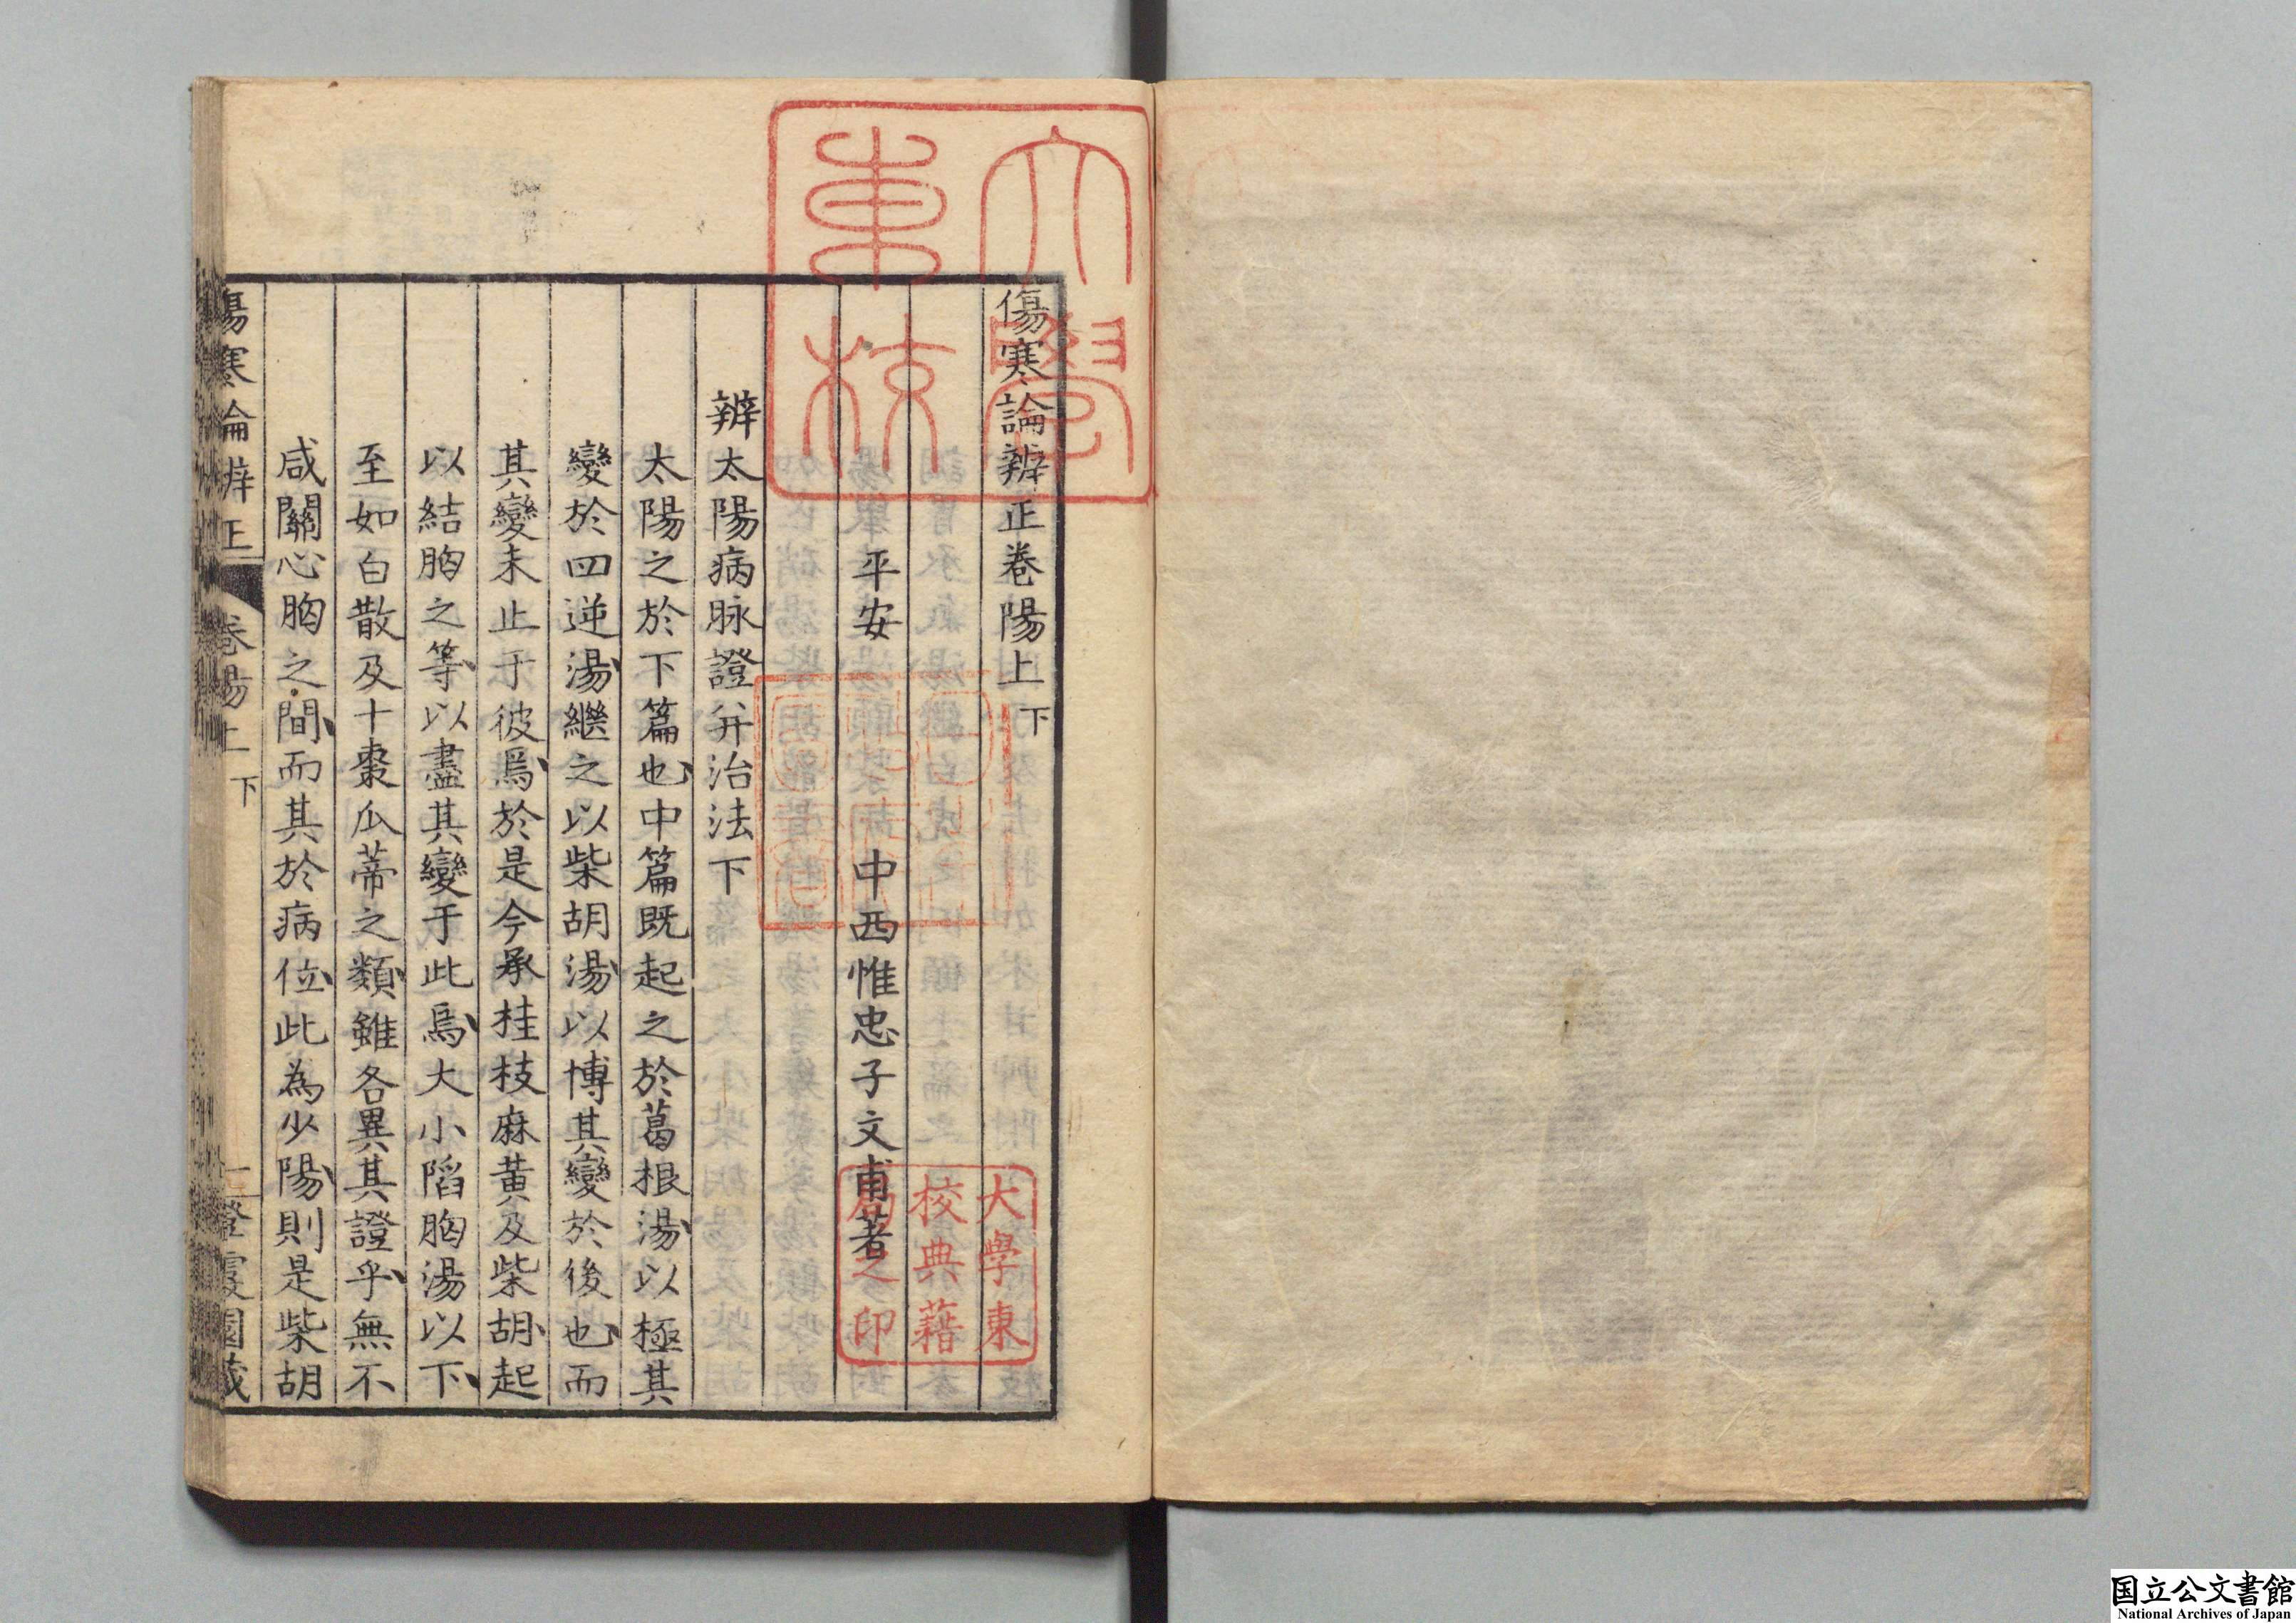 傷寒論辨正卷陽上下
平安　中西惟忠子文甫著
辨太陽病脉證并治法下
太陽之於下篇也中篇既起之於葛根湯以極其
變於四逆湯繼之以柴胡湯以博其變於後也而
其變未止于彼焉於是今承桂枝麻黃及柴胡起
以結胸之等以盡其變于此焉大小陷胸湯以下
至如白散及十棗瓜蒂之類雖各異其證乎無不
咸關心胸之間而其於病位此為少陽則是柴胡
傷寒論辨正　卷陽上下　一
大學東校
大學東
校典籍
局之印
国立公文書館
National Archives of Japan